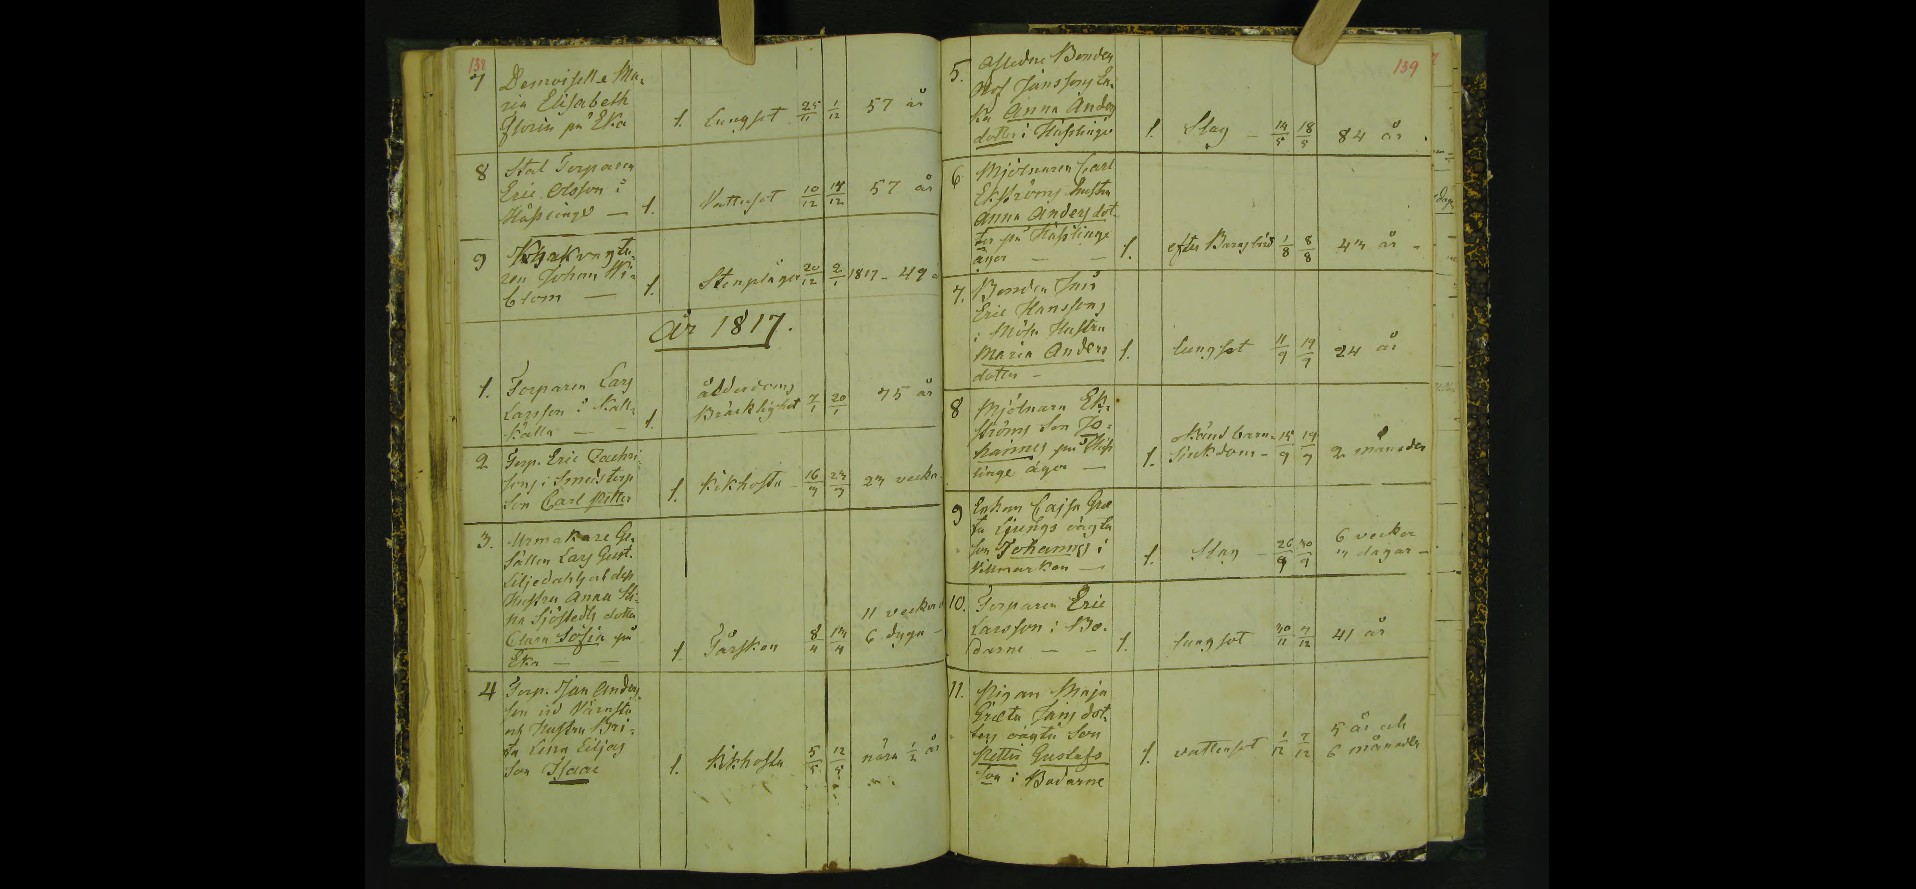 138
7 Demoiselle Ma-
ria Elisabeth
Florin på Eka 1. Lungsot 25/11 1/12 57 år
8 Stat Torparen
Eric Olsson i
Häßlinge — 1. Vattusot 10/12 14/12 57 år
9
ren Johan Wi-
blom — 1. Stenplågor 20/12 2/1 1817 - 49
År 1817.
1. Torparen Lars
Larsson i Kall-
källa — — 1. ålderdoms
Bräcklighet 7/1 20/1 75 år
2 Torp. Eric
sons i Smedstorp
son Carl Petter 1. Kikhosta - 16/3 23/3 23 veckor
3. Urmakare Ge-
sällen Lars Gust.
Liljedahls dess
Hustru Anna Sti-
na Sjöstedts dotter
Clara Sofia på
Eka — — 1. Tårsken 8/4 13/4 11 veckor
6 dygn —
4 Torp. Jan Anders-
son vid Wärnsta
och Hustru Bri-
ta Lena Eiljas
son Isaac 1. Kikhosta 5/5 12/5 nära 1/2 år
139
5. Afledne Bonden
Olof Janssons En-
ka Anna Anders
dotter i Häßlinge 1. Slag — 14/5 18/5 84 år.
6 Mjölnaren Carl
Ekströms hustru
Anna Andersdot-
ter på Häßlinge
ägor — — 1. efter Barnsbörd 1/8 8/8 43 år -
7. Bonden
Eric Hanssons
i Hustru
Maria Anders
dotter — 1. lungsot 11/9 19/9 24 år
8 Mjölnare Ek-
ströms son Jo-
hannes på Häß
linge ägor — 1. okänd barn-
sjukdom - 15/9 19/9 2 månader
9 Enkan Cajsa Gre
ta Ljungs oägta
son Johannes i
Villmarken — 1. Slag — 26/9 30/9 6 veckor
3 dagar —
10. Torparen Eric
Larsson i Bo-
darne — — 1. lungsot 30/11 7/12 41 år
11. Pigan Maja
Greta Jans dot-
ters oägta son
Petter Gustafs
son i Bodarne 1. vattensot 1/12 7/12 5 år och
6 månader